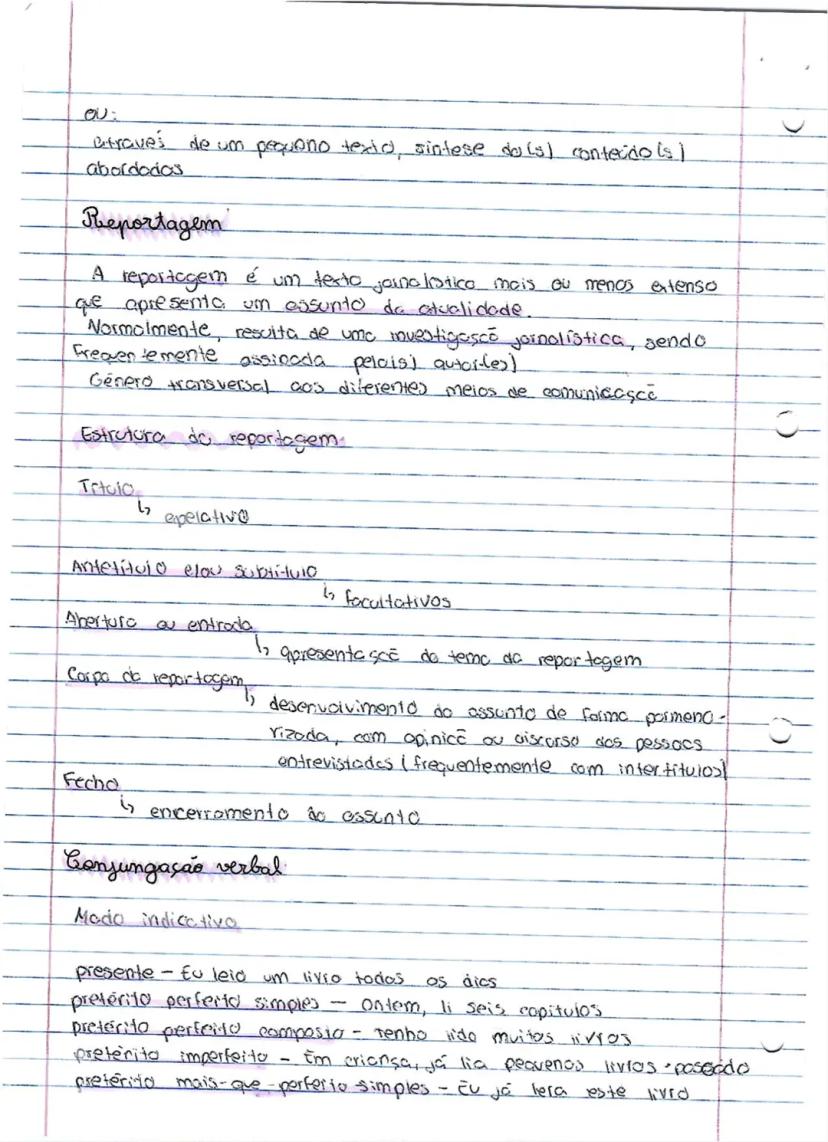 ou:
através de um pequeno texto, síntese do(s) conteúdo(s)
abordados
Reportagem
A reportagem é um texto jornalístico mais ou menos extenso
que apresenta um assunto da atualidade.
Normalmente, resulta de uma investigação jornalística, sendo
Frequentemente assinada pelo(s) autor(es)
Género transversal aos diferentes meios de comunicação
Estrutura da reportagem
Título
↳ apelativo
Antetítulo e/ou subtítulo
↳ facultativos
Abertura ou entrada
↳ apresentação do tema da reportagem
Corpo da reportagem
↳ desenvolvimento do assunto de forma pormeno-
rizada, com opinião ou discurso das pessoas
entrevistadas (frequentemente com intertítulos)
Fecho
↳ encerramento do assunto
Conjungação verbal
Modo indicativo
presente - Eu leio um livro todos os dias
pretérito perfeito simples - Ontem, li seis capítulos
pretérito perfeito composto - Tenho lido muitos livros
pretérito imperfeito - Em criança, já lia pequenos livros
pretérito mais-que-perfeito simples - Eu já lera este livro